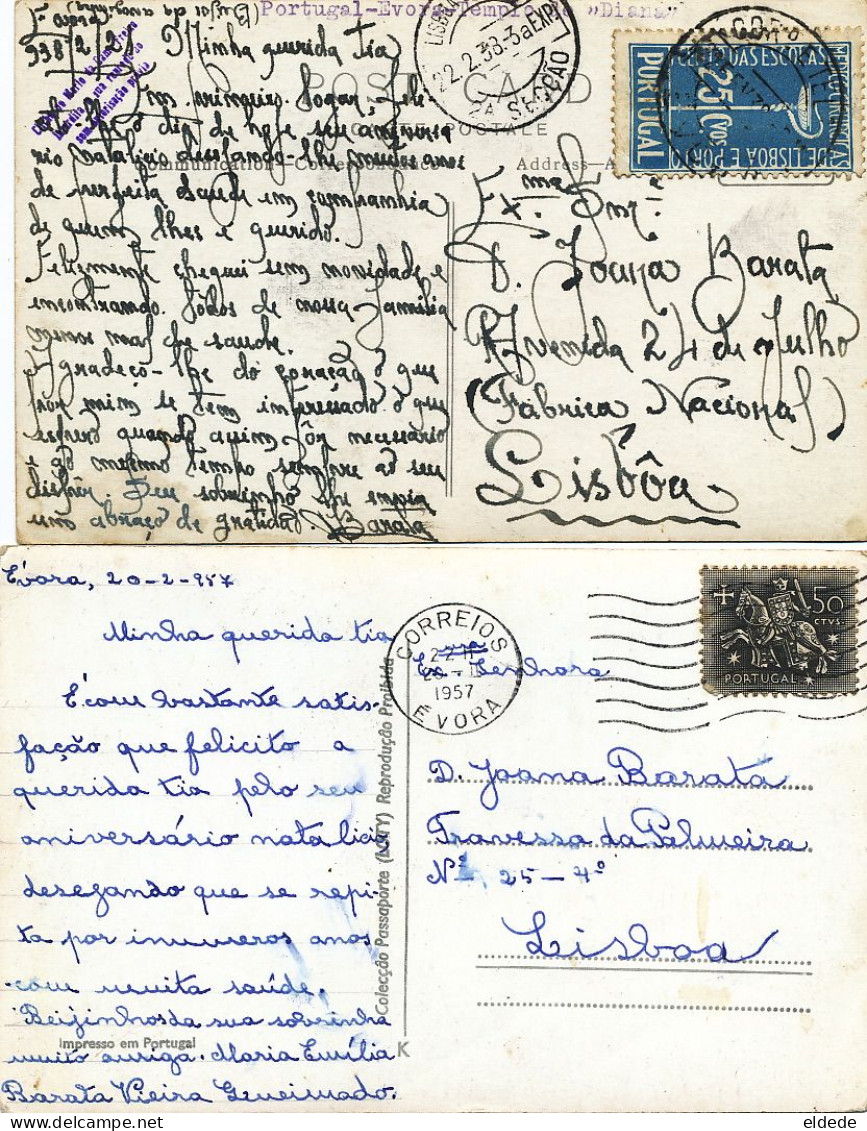 Portugal-Evora-Templo de »Diana»
Évora
938/2/21
Minha querida tia
Em primeiro logar, feli-
o dia de hoje seu aniversa
rio natalicio desejando-lhe muitos anos
de perfeita saude em companhia
de quem lhes é querido.
Felizmente cheguei sem novidade e
encontrando todos de nossa familia
menos mal de saude.
Agradeço-lhe do coração o que
por mim se tem interessado o que
espero quando assim fôr necessário
e ao mesmo tempo sempre ao seu
dispôr. Seu sobrinho lhe envia
um abraço de gratidão. Barata
POST CARD
CARTE POSTALE
Communication—Correspondance
Address—A
LISBOA
22.2.38-3a EXP
2A SECÇÃO
25 Cvos
PORTUGAL
DE LISBOA E PORTO
Exma. Snra.
D. Joana Barata
Avenida 24 de Julho
(Fabrica Nacional)
Lisbôa
Évora, 20-2-957
Minha querida tia
É com bastante satis-
fação que felicito a
querida tia pelo seu
aniversário natalicio
desejando que se repi-
ta por inumeros anos
com muita saúde.
Beijinhos da sua sobrinha
muito amiga. Maria Emília
Barata Vieira
Impresso em Portugal
K
Colecção Passaporte (LOTY) Reprodução Proibida
CORREIOS
1957
EVORA
50
CTVS.
PORTUGAL
Exma Senhora
D. Joana Barata
Travessa da Palmeira
Nº 25-4º
Lisboa